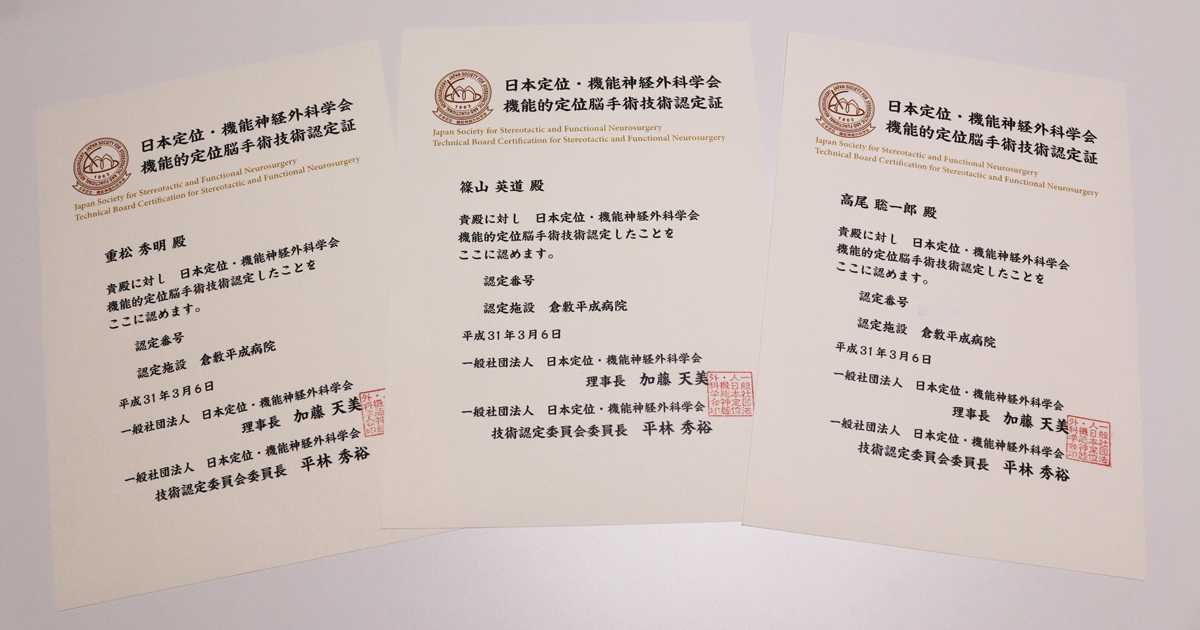 JAPAN SOCIETY FOR STEREOTACTIC AND FUNCTIONAL NEUROSURGERY
1963
日本定位・機能神経外科学会
機能的定位脳手術技術認定証
Japan Society for Stereotactic and Functional Neurosurgery
Technical Board Certification for Stereotactic and Functional Neurosurgery
重松 秀明 殿
貴殿に対し 日本定位・機能神経外科学会
機能的定位脳手術技術認定したことを
ここに認めます。
認定番号
認定施設 倉敷平成病院
平成31年3月6日
一般社団法人 日本定位・機能神経外科学会
理事長 加藤 天美
一般社団法人 日本定位・機能神経外科学会
技術認定委員会委員長 平林 秀裕
JAPAN SOCIETY FOR STEREOTACTIC AND FUNCTIONAL NEUROSURGERY
1963
日本定位・機能神経外科学会
機能的定位脳手術技術認定証
Japan Society for Stereotactic and Functional Neurosurgery
Technical Board Certification for Stereotactic and Functional Neurosurgery
篠山 英道 殿
貴殿に対し 日本定位・機能神経外科学会
機能的定位脳手術技術認定したことを
ここに認めます。
認定番号
認定施設 倉敷平成病院
平成31年3月6日
一般社団法人 日本定位・機能神経外科学会
理事長 加藤 天美
一般社団法人 日本定位・機能神経外科学会
技術認定委員会委員長 平林 秀裕
一般社団法
人日本定位
・機能神経
外科学会印
JAPAN SOCIETY FOR STEREOTACTIC AND FUNCTIONAL NEUROSURGERY
1963
日本定位・機能神経外科学会
機能的定位脳手術技術認定証
Japan Society for Stereotactic and Functional Neurosurgery
Technical Board Certification for Stereotactic and Functional Neurosurgery
高尾 聡一郎 殿
貴殿に対し 日本定位・機能神経外科学会
機能的定位脳手術技術認定したことを
ここに認めます。
認定番号
認定施設 倉敷平成病院
平成31年3月6日
一般社団法人 日本定位・機能神経外科学会
理事長 加藤 天美
一般社団法人 日本定位・機能神経外科学会
技術認定委員会委員長 平林 秀裕
一般社団法
人日本定位
・機能神経
外科学会印